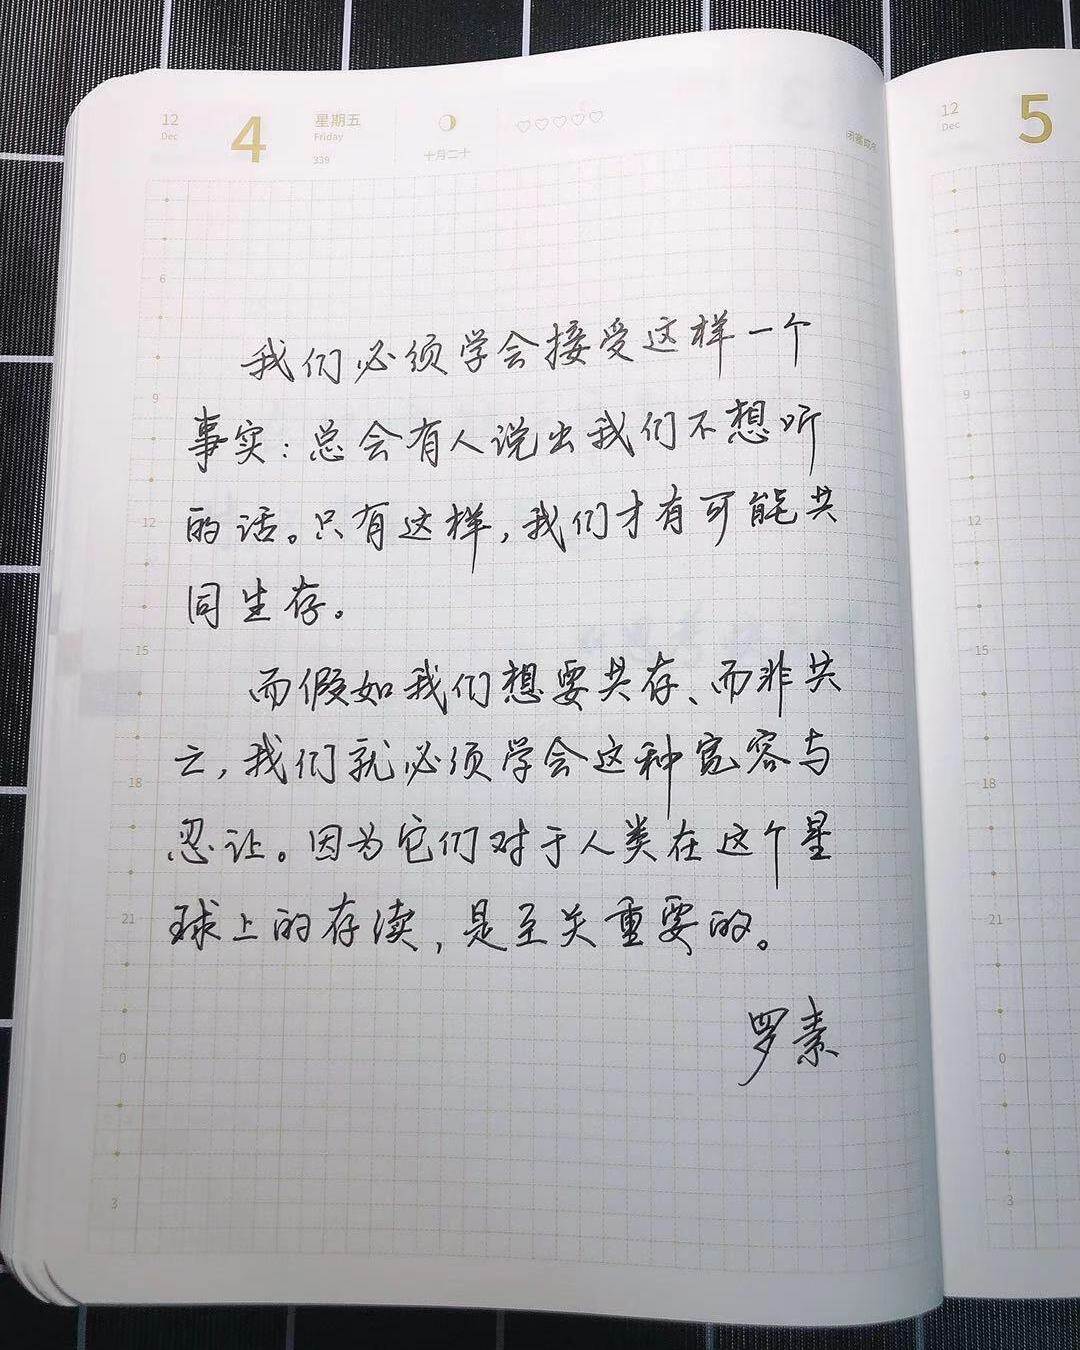 12
Dec
4
星期五
Friday
339
十月二十
12
Dec
5
我们必须学会接受这样一个
事实：总会有人说出我们不想听
的话。只有这样，我们才有可能共
同生存。
而假如我们想要共存、而非共
亡，我们就必须学会这种宽容与
忍让。因为它们对于人类在这个星
球上的存续，是至关重要的。
罗素
6
9
12
15
18
21
0
3
6
9
12
15
18
21
0
3